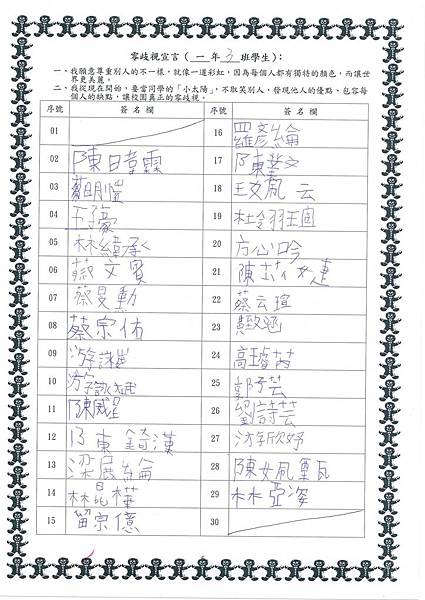 零歧視宣言（一年3班學生）：
一、我願意尊重別人的不一樣，就像一道彩虹，因為每個人都有獨特的顏色，而讓世
界更美麗。
二、我從現在開始，要當同學的「小太陽」，不取笑別人、發現他人的優點、包容每
個人的缺點，讓校園真正的零歧視。
序號 簽名欄 序號 簽名欄
01 16 羅彥綸
02 陳日萱霖 17 陳
03 18 王文風云
04 王豪 19 杜
05 林緯承 20 方心吟
06 文賢 21 陳
07 蔡旻勳 22 蔡云瑄
08 蔡宗佑 23
09 游 24 高
10 游 25 郭予芸
11 陳 26 劉詩芸
12 陳錡漢 27 游昕妤
13 梁晨綸 28 陳
14 林昆樺 29 林亞姿
15 留宗億 30